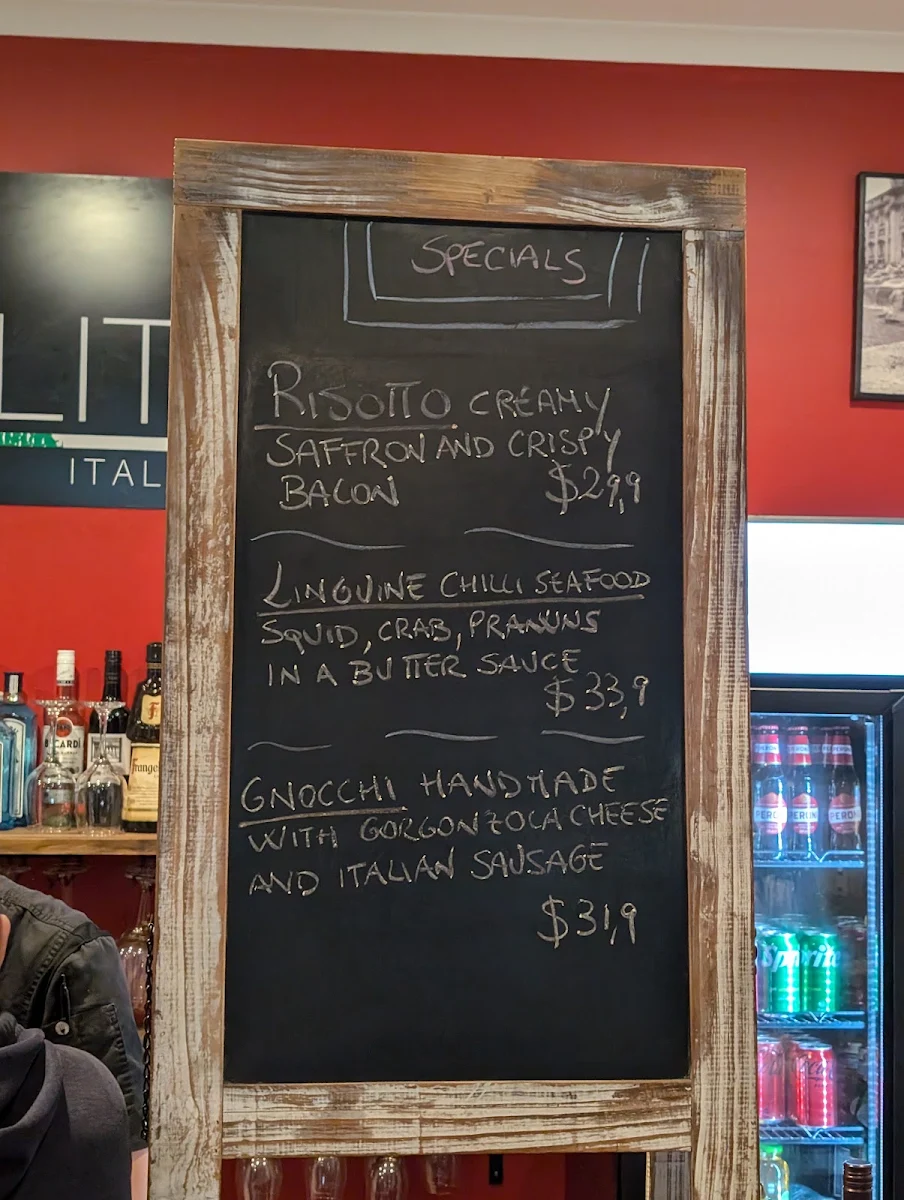 LIT
ITAL
SPECIALS
RISOTTO CREAMY
SAFFRON AND CRISPY
BACON $29,9
LINGUINE CHILLI SEAFOOD
SQUID, CRAB, PRAWNS
IN A BUTTER SAUCE
$33,9
GNOCCHI HANDMADE
WITH GORGONZOLA CHEESE
AND ITALIAN SAUSAGE
$31,9
CARDI
F
Frange
PERO
PERONI
PERONI
Sprite